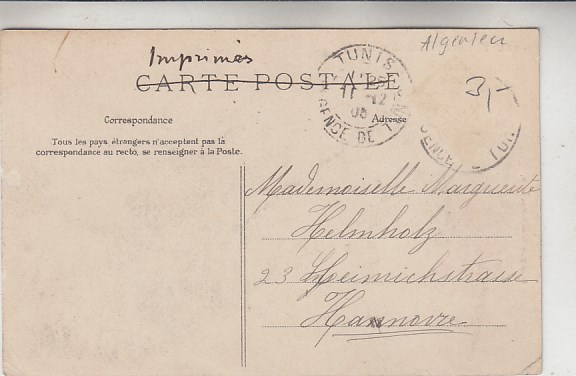 Algerien
Imprimés
CARTE POSTALE
TUNIS
11 -12
05
REGENCE DE TUNIS
3,-
Correspondance
Adresse
Tous les pays étrangers n'acceptent pas la
correspondance au recto, se renseigner à la Poste.
GENCE TUN
Mademoiselle Marguerite
Helmholz
23 Heinrichstrasse
Hannovre